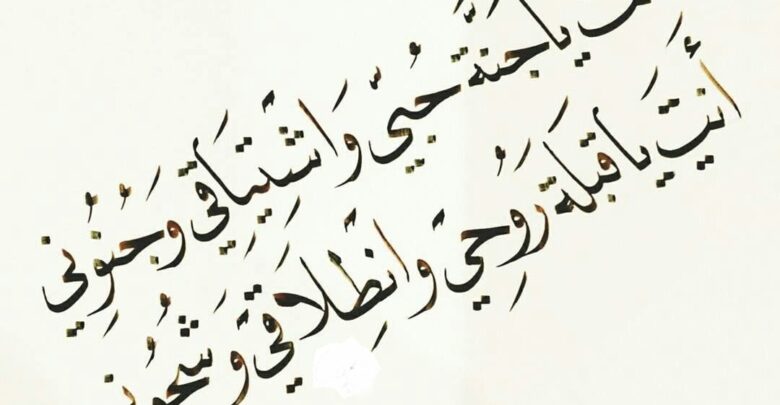 يا جَنَّةَ حُبِّي وَاشْتِيَاقِي وَجُنُونِي
أَنتِ يَا قِبلَةَ رُوحِي وَانطِلَاقِي وَشُجُونِي